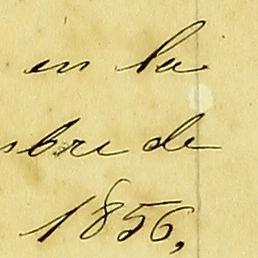 en la
mbre de
1856,